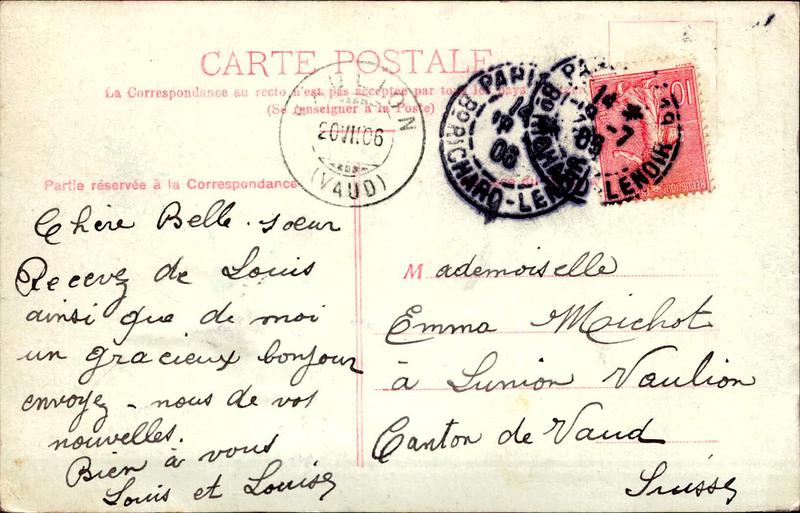 CARTE POSTALE
La Correspondance au recto n'est pas acceptée par tous les pays
(Se renseigner à la Poste)
VAULION
20 VII.06
(VAUD)
PARIS
Bd RICHARD-LENOIR
06
PARIS
14
Bd RICHARD-LENOIR
10
REPUBLIQUE
Partie réservée à la Correspondance
Chère Belle-soeur
Recevez de Louis
ainsi que de moi
un gracieux bonjour
envoyez-nous de vos
nouvelles.
Bien à vous
Louis et Louise
Mademoiselle
Emma Michot
à Vaulion
Canton de Vaud
Suisse